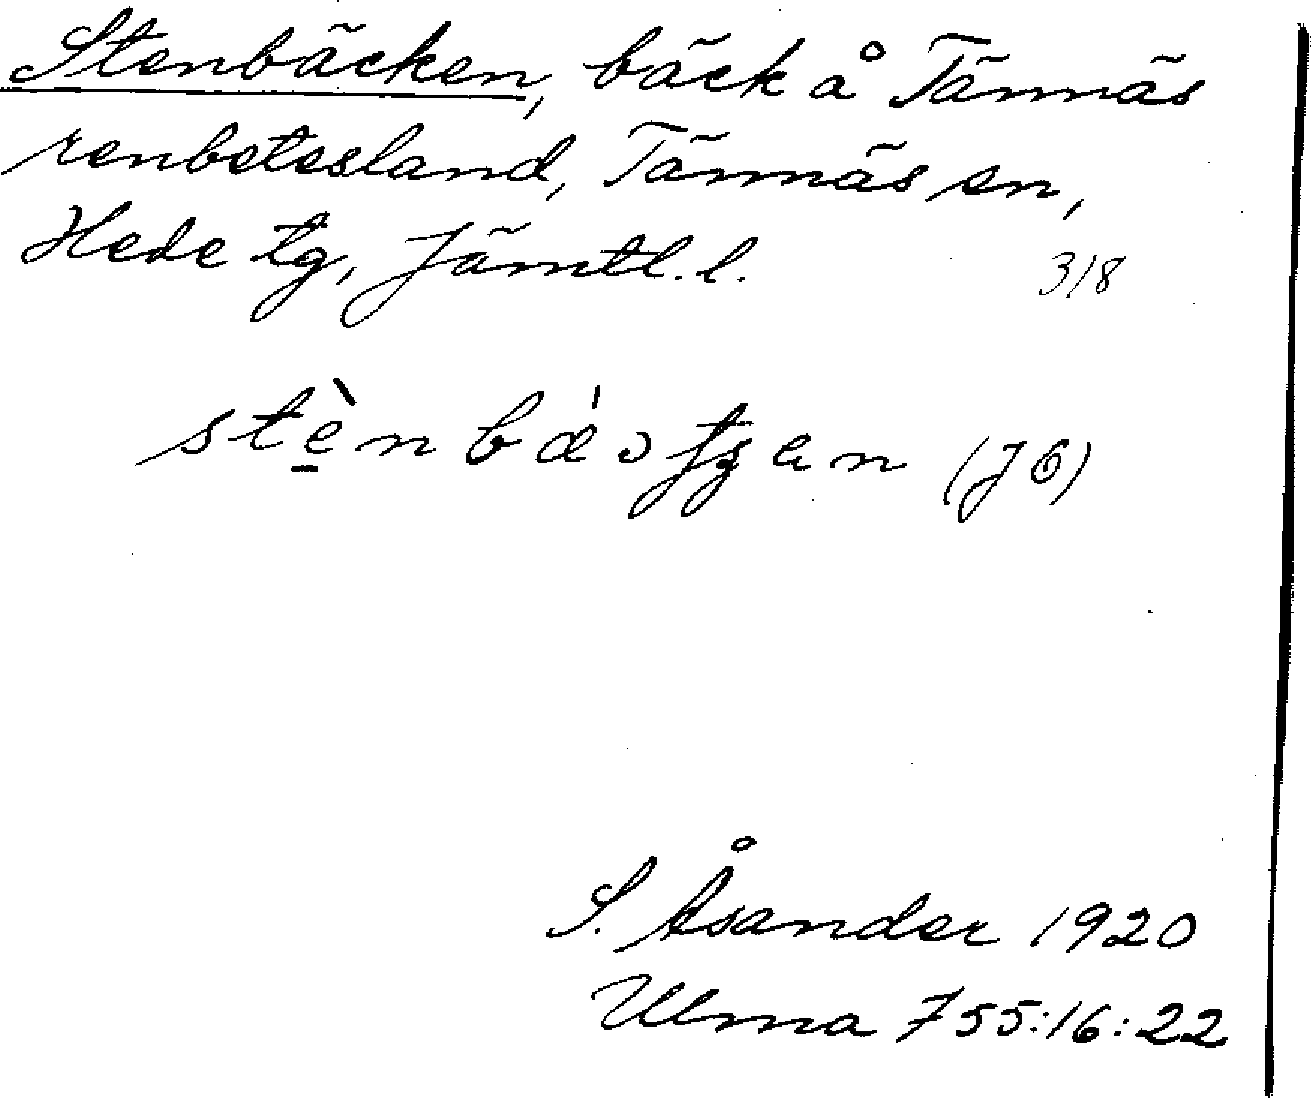 Stenbäcken, bäck å Tännäs
renbetesland, Tännäs sn,
Hede tg, Jämtl. l. 318
(JÖ)
S. Åsander 1920
Ulma 755:16:22